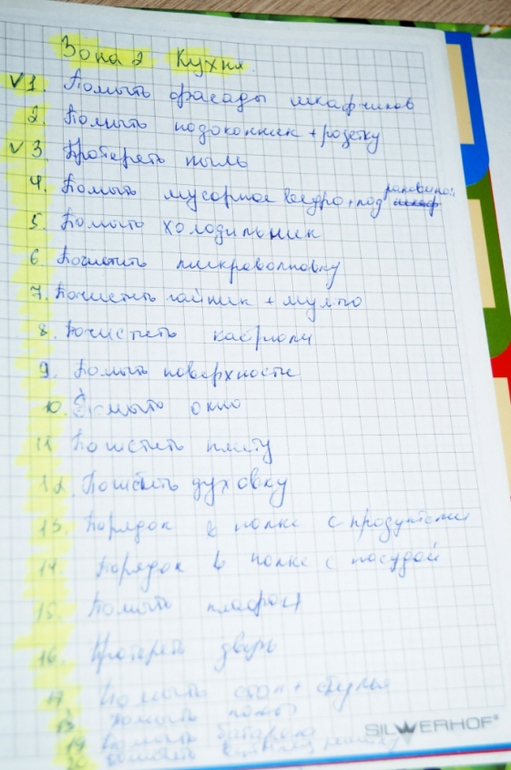 Зона 2 Кухня
✓ 1. Помыть фасады шкафчиков
2. Помыть подоконник + розетку
✓ 3. Протереть пыль
4. Помыть мусорное ведро + под раковиной
5. Помыть холодильник
6. Почистить микроволновку
7. Почистить чайник + мульто
8. Почистить кастрюли
9. Помыть поверхности
10. Помыть окно
11. Почистить плиту
12. Почистить духовку
13. Порядок в полке с продуктами
14. Порядок в полке с посудой
15. Помыть плафон
16. Протереть дверь
17. Помыть стол + стулья
18. Помыть полы
19. Помыть батарею
20. Почистить
SILWERHOF